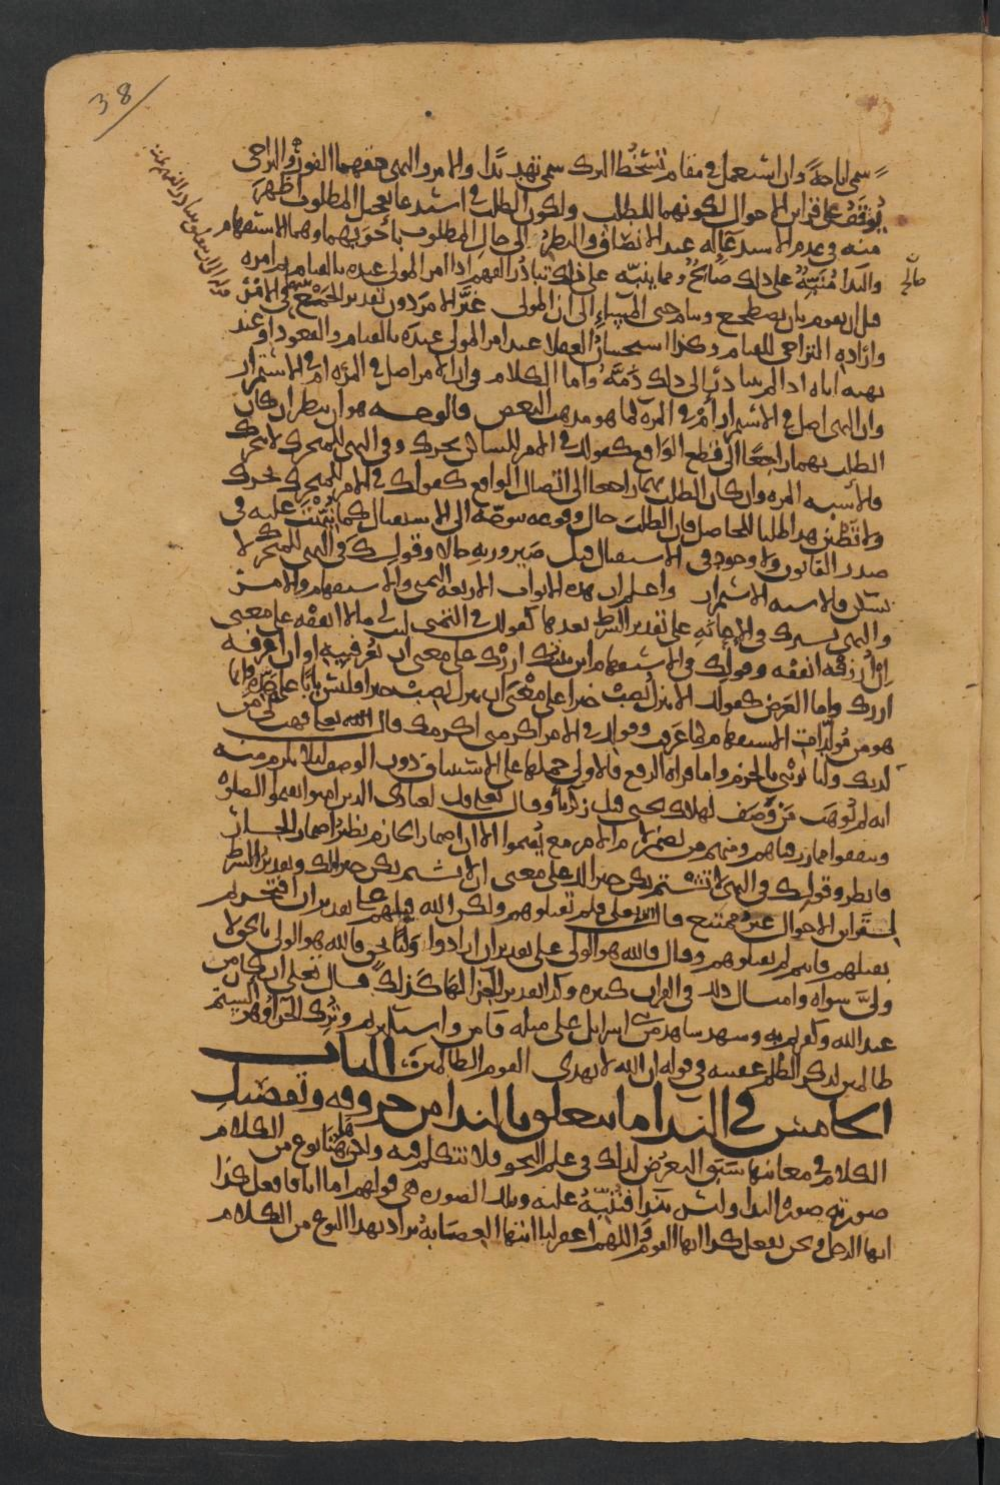 38
سمى اباحة وان استعمل في مقام تسخط الترك سمى تهديدا والامر والنهي حقهما الفور والتراخي
يوقف على قراين الاحوال لكونهما للطلب ولكون الطلب في استدعا تعجيل المطلوب اظهر
منه في عدم الاستدعا له عند الانصاف والنظر الى حال المطلوب باخويهما وهما الاستفهام
والندا منبهة على ذلك صالح ومما ينبه على ذلك تبادر الفهم اذا امر المولى عبده بالقيام ثم امره
قبل ان يقوم بان يضطجع وينام حتى المساء الى ان المولى غير الامر دون تقدير الجمع في الامر
وارادة التراخي للقيام وكذا استحسان العقلا عند امر المولى عبده بالقيام والقعود او عند
نهيه اياه اذا لم يتبادر الى ذلك ذمه واما الكلام في ان الامر اصل في المرة ام في الاستمرار
وان النهي اصل في الاستمرار ام في المرة كما هو مذهب البعض فالوجه هو ان ينظر ان كان
الطلب بهما راجعا الى قطع الواقع كقولك في الامر للساكن تحرك وفي النهي للمتحرك لا تتحرك
فالاشبه المرة وان كان الطلب بهما راجعا الى اتصال الواقع كقولك في الامر للمتحرك تحرك
ولا تظنن هذا طلبا للحاصل فان الطلب حال وقوعه يتوجه الى الاستقبال كما نبهت عليه في
صدر القانون ولا وجود في الاستقبال قبل صيرورته حالا وقولك في النهي للمتحرك لا
تسكن فالاشبه الاستمرار واعلم ان هذه الابواب الاربعة التمني والاستفهام والامر
والنهي تشترك في الاعانة على تقدير الشرط بعدها كقولك في التمني ليت لي مالا انفقه على معنى
ان ارزقه انفقه وقولك في الاستفهام اين بيتك ازرك على معنى ان تعرفنيه او ان اعرفه
ازرك واما العرض كقولك الا تنزل تصب خيرا على معنى ان تنزل تصب خيرا فليس بابا على حدة وانما
هو من مولدات الاستفهام كما عرف وقولك في الامر اكرمني اكرمك قال الله تعالى فهب لي من
لدنك وليا يرثني بالجزم واما قراة الرفع فالاولى حملها على الاستئناف دون الوصف ليلا يلزم منه
انه لم يوهب من وصف لهلاك يحيى قبل زكريا وقال تعالى قل لعبادي الذين امنوا يقيموا الصلوة
وينفقوا مما رزقناهم ومنهم من يضمر لام الامر مع يقيموا الا ان اضمار الجازم نظير اضمار الجار
فانظر وقولك في النهي لا تشتم يكن خيرا لك على معنى ان لا تشتم يكن خيرا لك وتقدير الشرط
لقراين الاحوال غير ممتنع قال الله تعالى فلم تقتلوهم ولكن الله قتلهم على تقدير ان افتخرتم
بقتلهم فانتم لم تقتلوهم وقال فالله هو الولي على تقدير ان ارادوا وليا بحق فالله هو الولي بالحق لا
ولي سواه وامثال ذلك في القران كثيرة وكذا تقدير الجزا لها كذلك قال تعالى ان كان من
عند الله وكفرتم به وشهد شاهد من بني اسرائل على مثله فامن واستكبرتم وترك الجزا وهو الستم
ظالمين لذكر الظلم عقيبه في قوله ان الله لا يهدي القوم الظالمين الباب
الخامس في الندا ما يتعلق بالندا من حروفه وتفصيل
الكلام في معانيها سبق التعرض لذلك في علم النحو فلا نتكلم فيه ولكن ههنا نوع من الكلام
صورته صورة الندا وليس بندا فننبه عليه وتلك الصورة هي قولهم اما انا فافعل كذا
ايها الرجل ونحن نفعل كذا ايها القوم واللهم اغفر لنا ايتها العصابة يراد بهذا النوع من الكلام